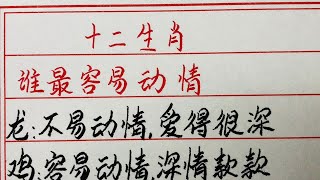 十二生肖
谁最容易动情
龙:不易动情,爱得很深
鸡:容易动情,深情款款